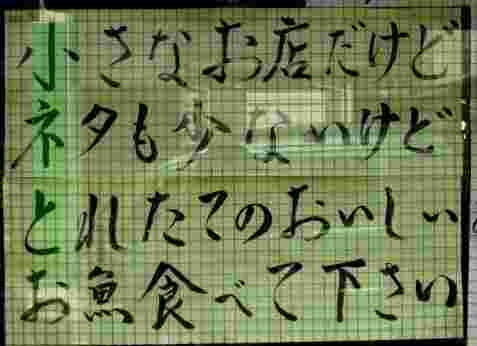 小さなお店だけど
ネタも少ないけど
とれたてのおいしい
お魚食べて下さい